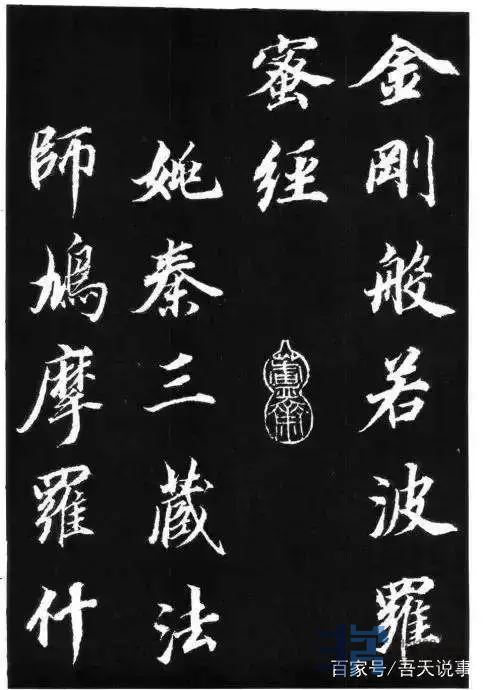 金剛般若波羅
蜜經
姚秦三藏法
師鳩摩羅什
百家号/吾天说事